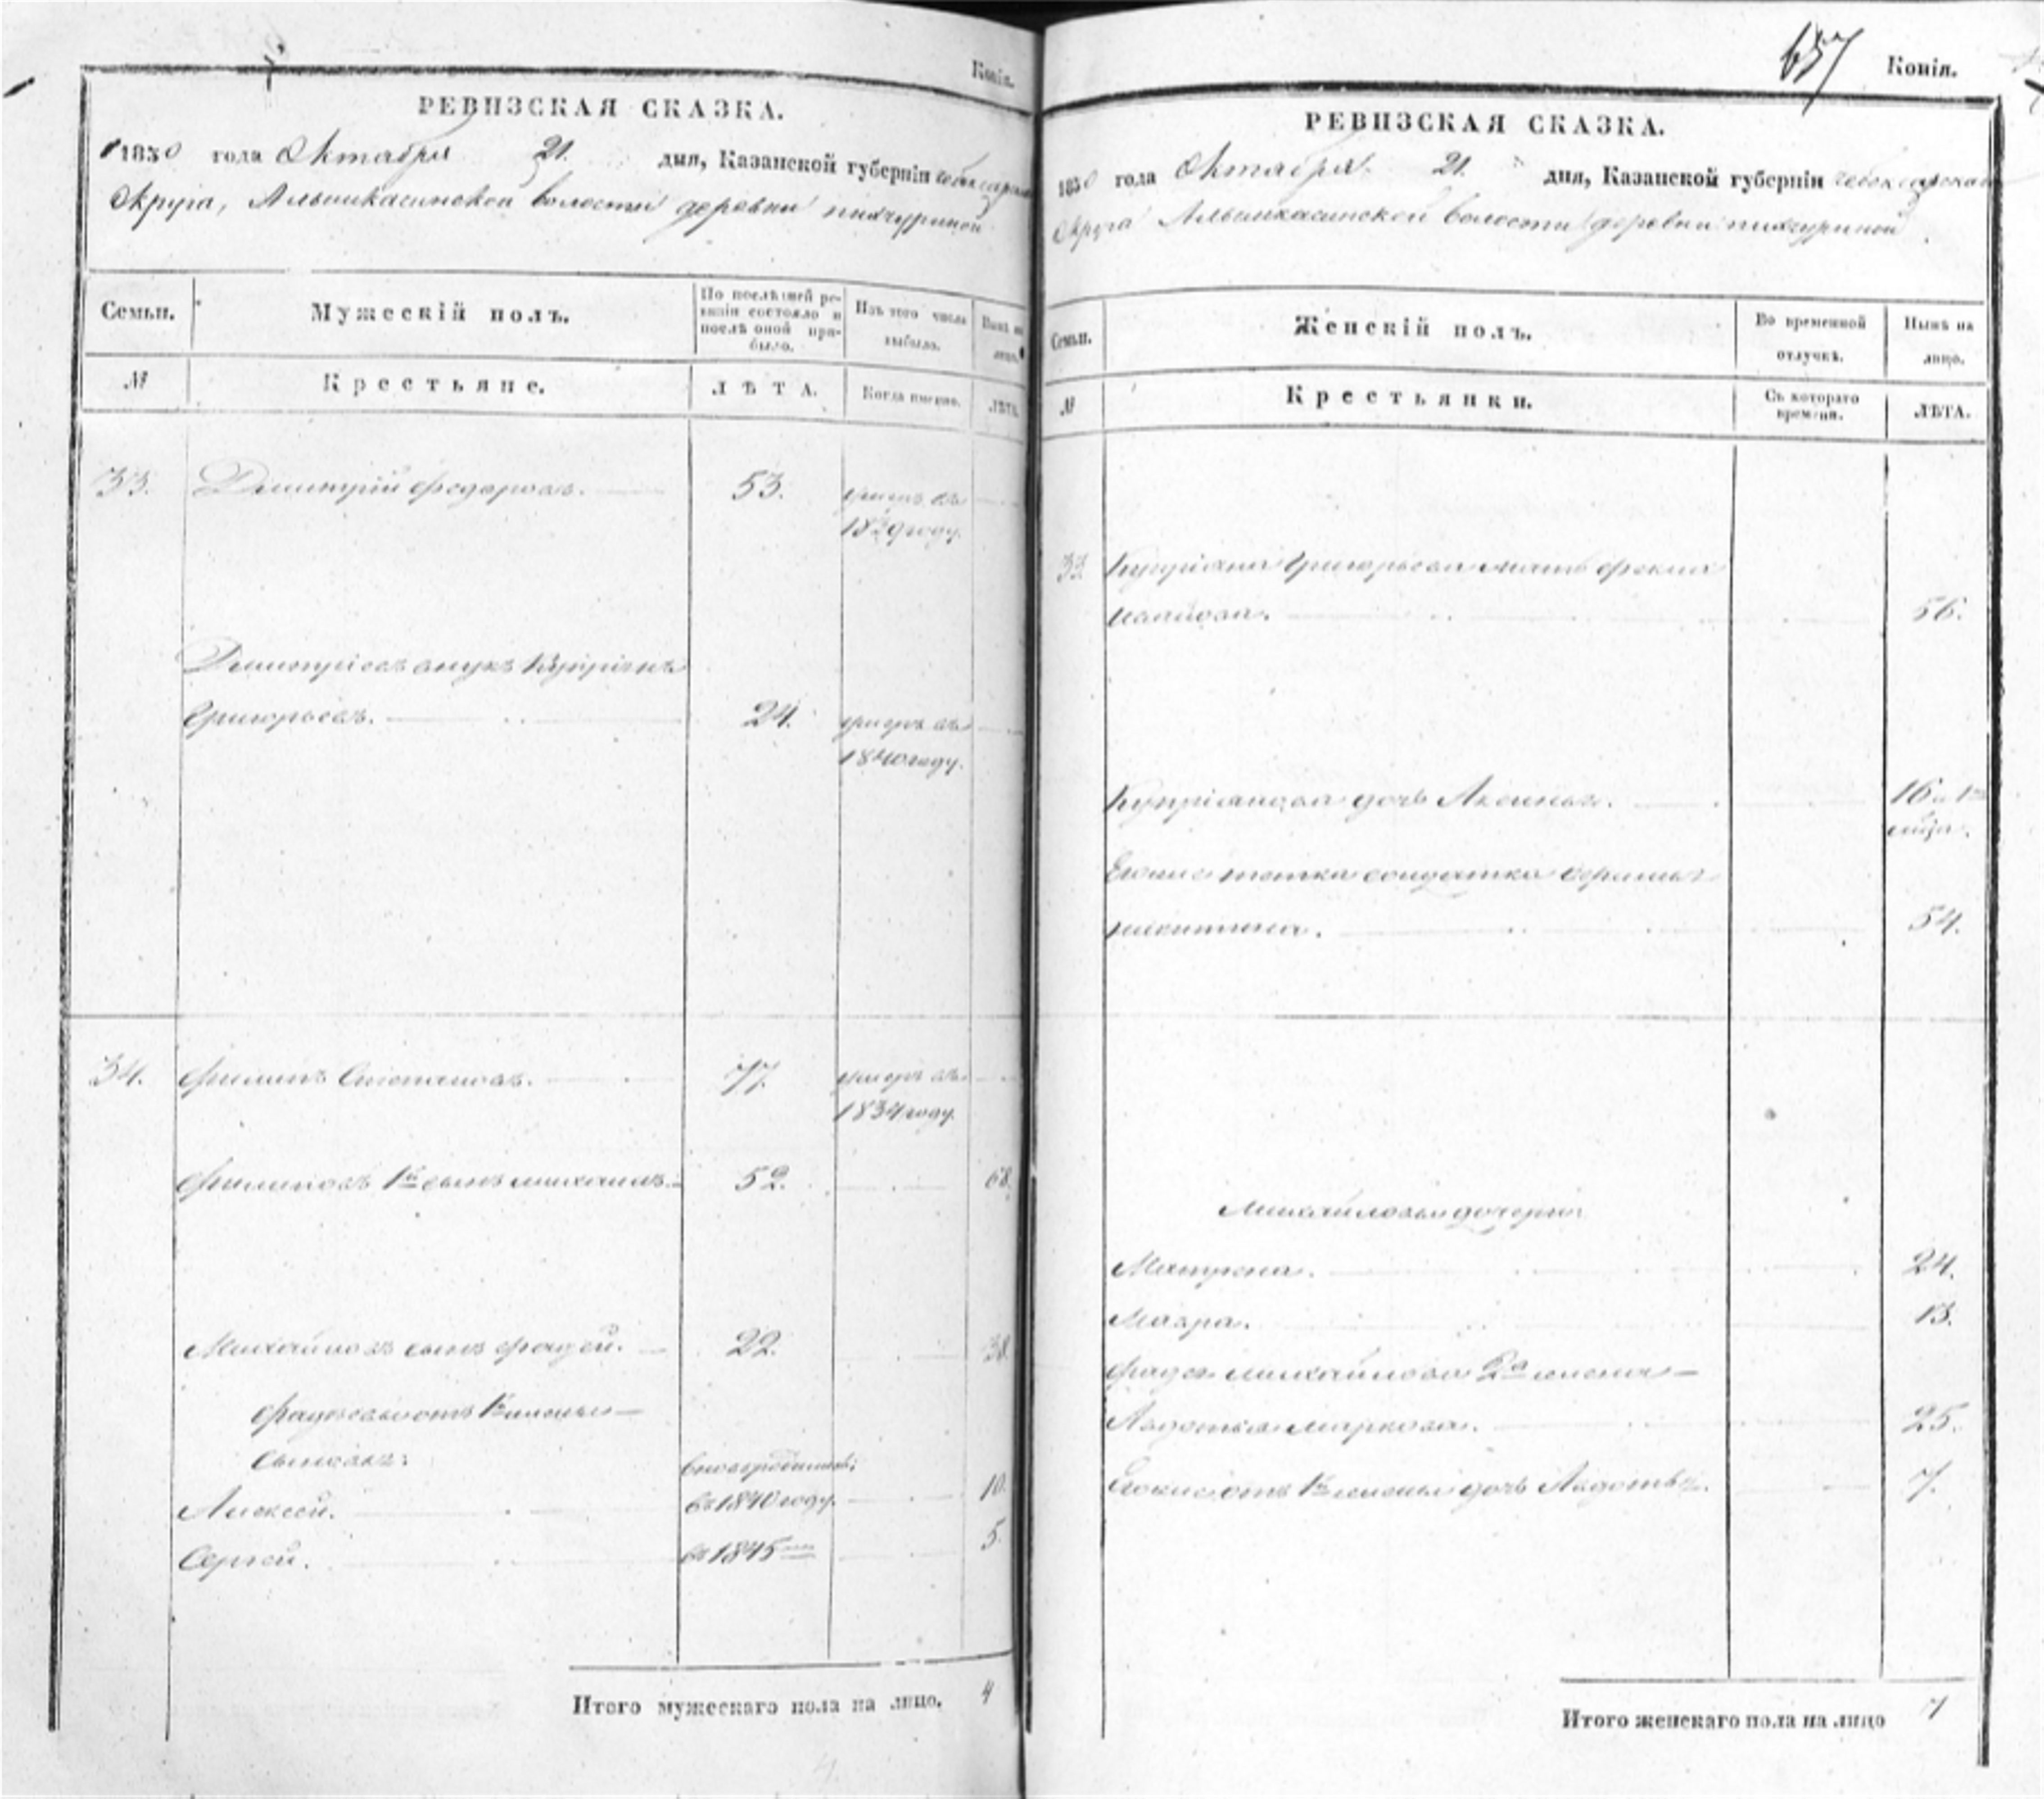 Копія.
РЕВИЗСКАЯ СКАЗКА.
1850 года Октября 21. дня, Казанской губерніи Чебоксарскаго
Округа, Альшикасинской волости деревни Пихчуриной
Семьи. Мужескій полъ. По послѣдней ревизіи состояло и послѣ оной прибыло. Изъ того числа выбыло. Нынѣ на лицо.
№ Крестьяне. ЛѢТА. Когда именно. ЛѢТА.
33. Димитрій Федоровъ. 53. умеръ въ
1839 году.
Димитріевъ внукъ Купріянъ
Григорьевъ. 24. умеръ въ
1840 году.
34. Филипъ Степановъ. 77. умеръ въ
1834 году.
Филиповъ 1й сынъ Михаилъ. 52. 68.
Михайловъ сынъ Фадей. 22. 38.
Фадѣевы отъ 1й жены
сыновья:
Алексей. въ 1840 году. 10.
Сергей. въ 1845 5.
Итого мужескаго пола на лицо. 4
657 Копія.
РЕВИЗСКАЯ СКАЗКА.
1850 года Октября 21. дня, Казанской губерніи Чебоксарскаго
Округа Альшикасинской волости деревни Пихчуриной
Семьи. Женскій полъ. Во временной отлучкѣ. Нынѣ на лицо.
№ Крестьянки. Съ котораго времени. ЛѢТА.
33 Купріяна Григорьева мать Фекла
56.
Купріянова дочь Аксинья. 16 и 1
Евоже тетка солдатка
никитина. 54.
Михайловы дочери:
Матрена. 24.
Мавра. 13.
Фадея Михайлова 2я жена
Авдотья Маркова. 25.
Евоже отъ 1й жены дочь Авдотья. 7.
Итого женскаго пола на лицо 7